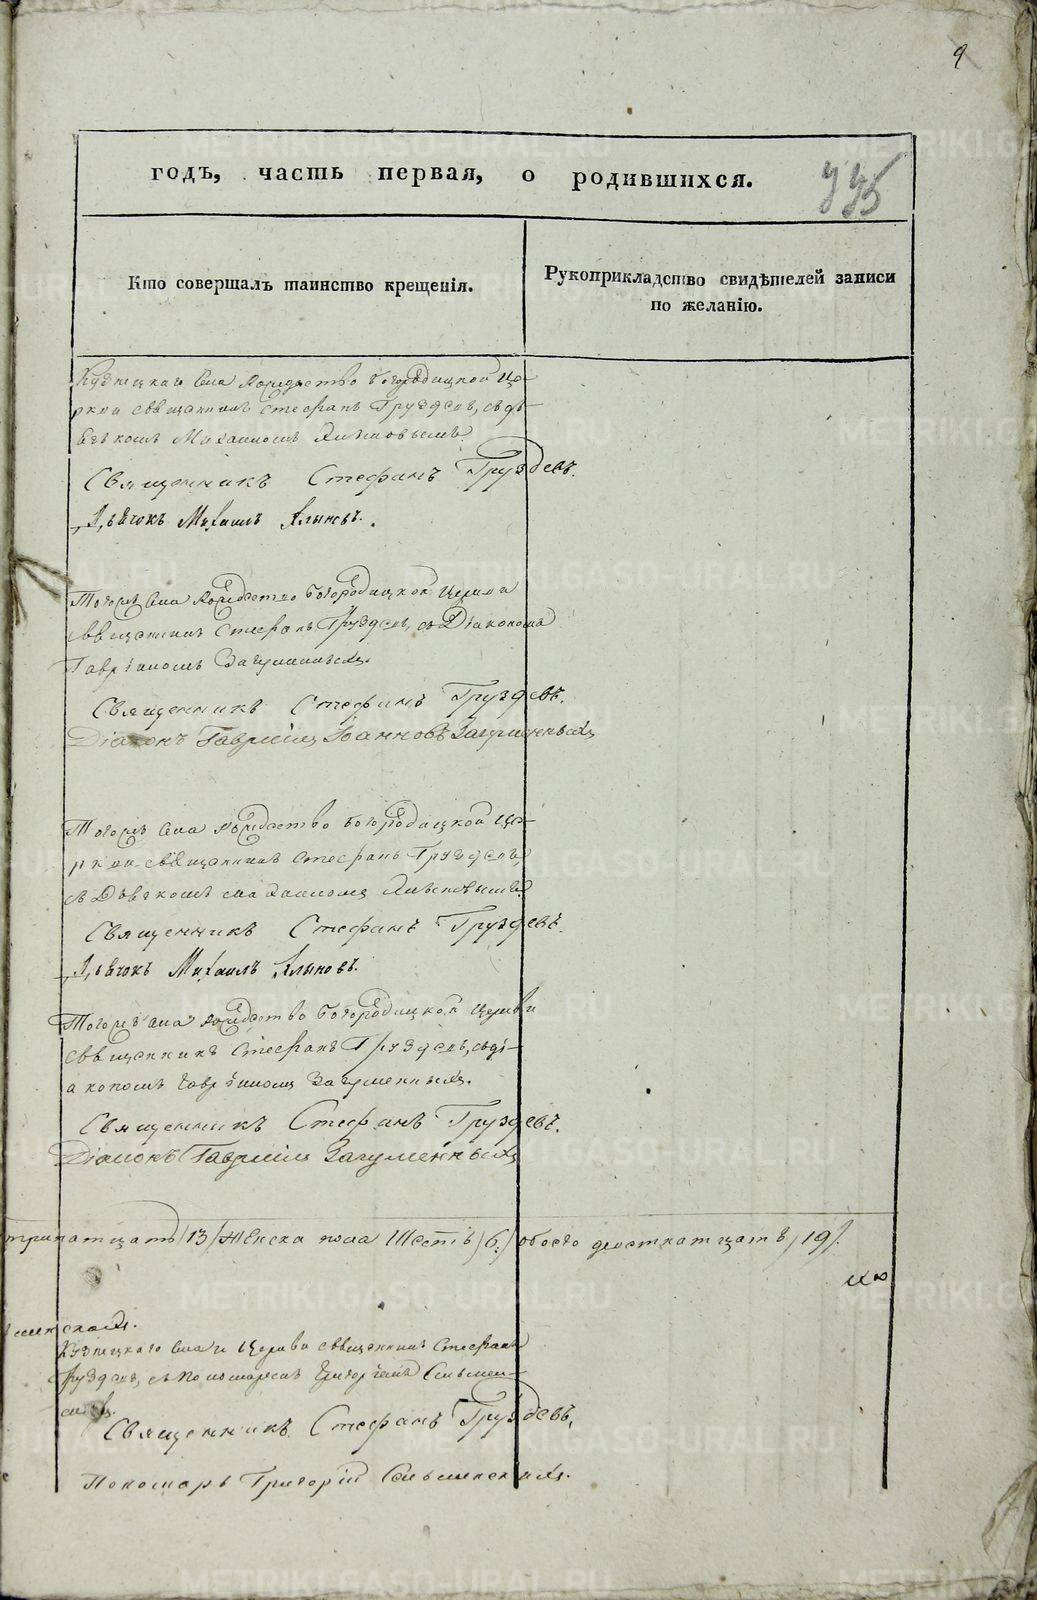 9
годъ, часть первая, о родившихся.
Кто совершалъ таинство крещенія.
Рукоприкладство свидѣтелей записи
по желанію.
Кузнецкаго Села Рождество Богородицкой Це-
ркви священникъ Стефанъ Груздевъ, съ дь-
Михаиломъ
Священникъ Стефанъ Груздевъ.
Дьячокъ Михаилъ Клыковъ.
Тогожъ Села Рождество Богородицкой Церкви
священникъ Стефанъ Груздевъ, съ Діакономъ
Гавріиломъ Загуменныхъ.
Священникъ Стефанъ Груздевъ.
Діаконъ Гавріилъ Іоанновъ Загуменныхъ
Тогожъ Села Рождество Богородицкой Це-
ркви священникъ Стефанъ Груздевъ,
съ Дьячкомъ Михаиломъ
Священникъ Стефанъ Груздевъ.
Дьячокъ Михаилъ Клыковъ.
Тогожъ Села Рождество Богородицкой Церкви
священникъ Стефанъ Груздевъ, съ ді-
акономъ Гавріиломъ Загуменныхъ.
Священникъ Стефанъ Груздевъ.
Діаконъ Гавріилъ Загуменныхъ
тринатцать /13/ Женска пола Шесть /6/ обоего девятнатцать /19/.
Кузнецкаго Села Церкви священникъ Стефанъ
Груздевъ, съ пономаремъ Григорьемъ
Священникъ Стефанъ Груздевъ,
Пономарь Григорій